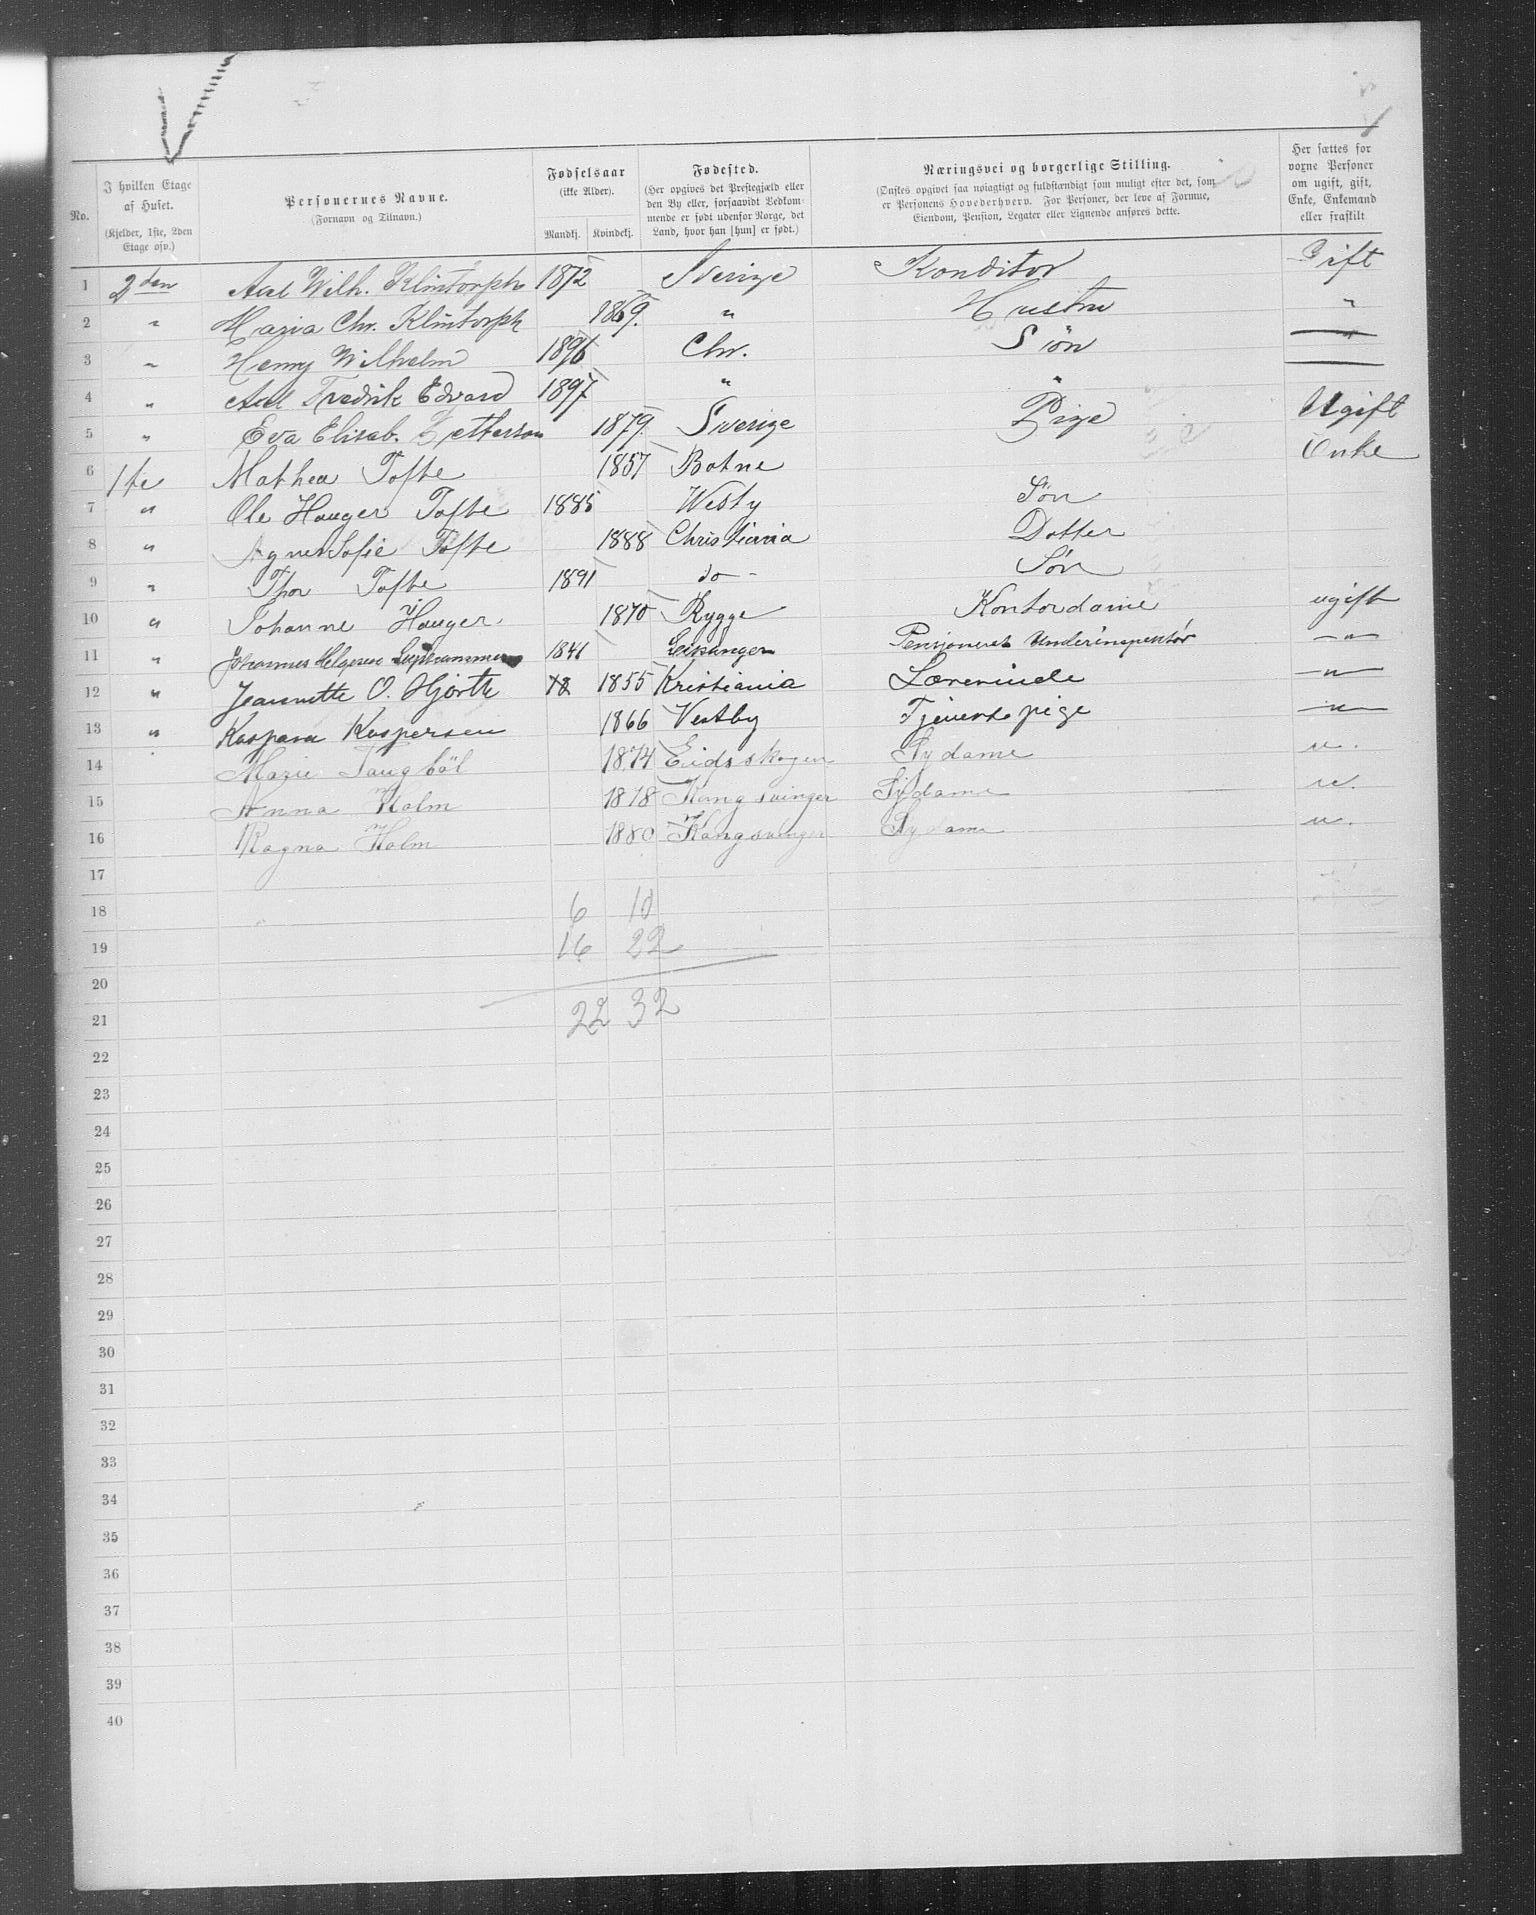 No.
I hvilken Etage af Huset. (Kjelder, 1ste, 2den Etage osv.)
Personernes Navne. (Fornavn og Tilnavn.)
Fødselsaar (ikke Alder). Mandkj. Kvindekj.
Fødested. (Her opgives det Prestegjæld eller den By eller, forsaavidt Vedkommende er født udenfor Norge, det Land, hvor han [hun] er født.)
Næringsvei og borgerlige Stilling. (Ønskes opgivet saa nøiagtigt og fuldstændigt som muligt efter det, som er Personens Hovederhverv. For Personer, der leve af Formue, Eiendom, Pension, Legater eller Lignende anføres dette.
Her sættes for vorne Personer om ugift, gift, Enke, Enkemand eller fraskilt
1 2den Axel Wilh. Klintorph 1872 Sverige Konditor Gift
2 " Maria Chr. Klintorph 1869. " Hustru "
3 " Henry Wilhelm 1896 Chr. Siön "
4 " Axel Fredrik Edvard 1897 " "
5 " Eva Elisab. Petterson 1879. Sverige Pige Ugift
6 1ste Mathea Tofte 1857 Botne Enke
7 " Ole Hauger Tofte 1885 Westy Søn
8 " Agnes Sofie Tofte 1888 Christiania Dotter
9 " Thor Tofte 1891 do - Søn
10 " Johanne Hauger. 1870 Rygge Kontordame ugift
11 " Johannes Helgesen 1841 Leikanger Pensjoneret Underinspektör — " —
12 " Jeannette O. Hjorth 18 1855 Kristiania Lærerinde — " —
13 " Kaspara Kaspersen 1866 Vestby Tjenestepige — " —
14 Marie Taugböl 1874 Eidsskogen Sydame u.
15 Anna Holm 1878 Kongsvinger Sydame u.
16 Ragna Holm 1880 Kongsvinger Sydame u.
17
18 6 10
19 16 22
20
21 22 32
22
23
24
25
26
27
28
29
30
31
32
33
34
35
36
37
38
39
40